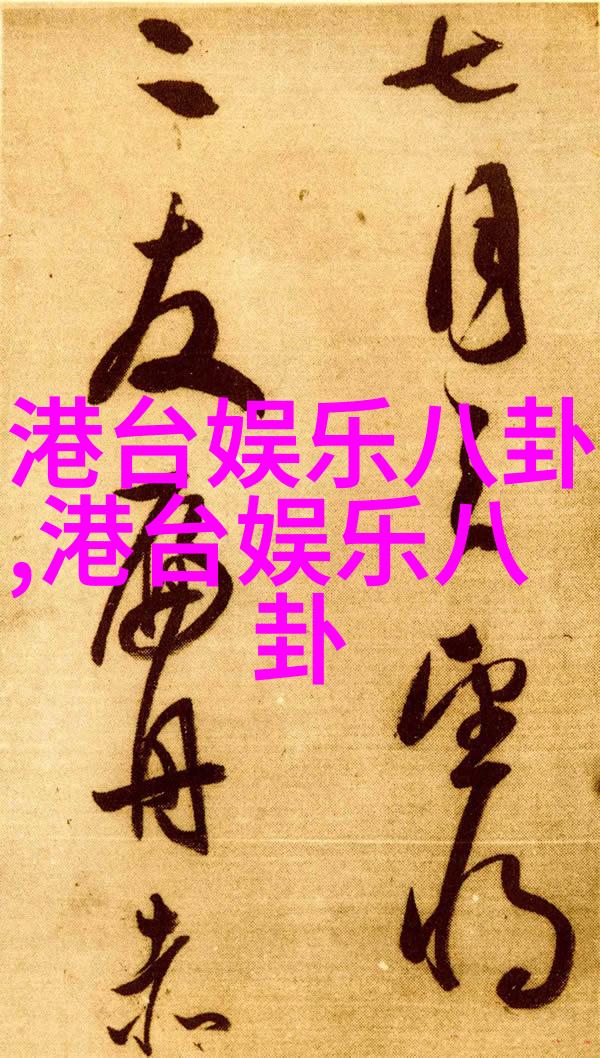 七月之望将
二友扁舟赤
港台娱乐八卦
,港台娱乐八
卦